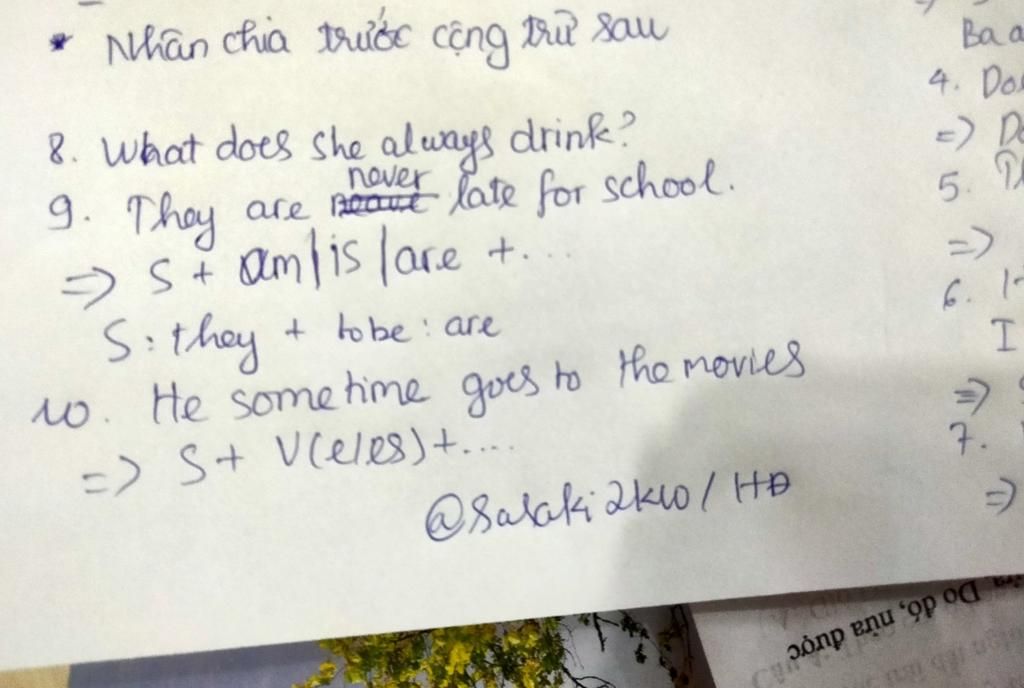 * Nhân chia trước cộng trừ sau
8. What does she always drink?
never
9. They are late for school.
=> S + am/is/are + ...
S: they + tobe: are
10. He sometime goes to the movies
=> S + V(e/es) + ....
@Sasaki2k10/HĐ
Ba a
4. Do
=> D
5. Th
=>
6. I
I
=>
7.
=>
Do đó, nửa được